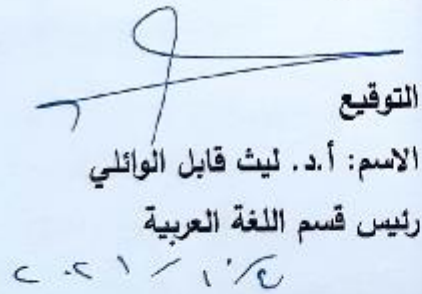 التوقيع
الاسم: أ.د. ليث قابل الوائلي
رئيس قسم اللغة العربية
٢٠٢١/١٠/٤